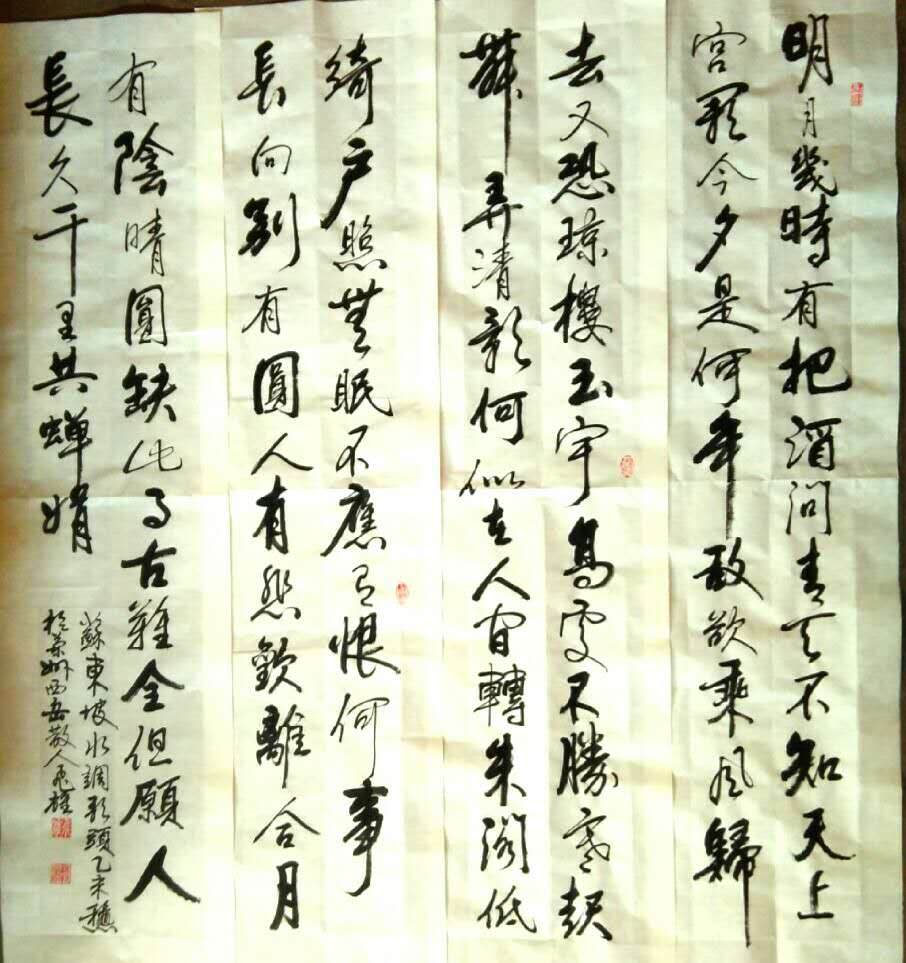 明月幾時有把酒問青天不知天上
宮闕今夕是何年我欲乘风歸
去又恐琼樓玉宇高處不勝寒起
舞弄清影何似在人間轉朱閣低
綺户照無眠不應有恨何事
長向别有圓人有悲歡離合月
有陰晴圓缺此事古難全但願人
長久千里共蟬娟
蘇東坡水調歌頭乙未穐
於州西岳散人飛雄